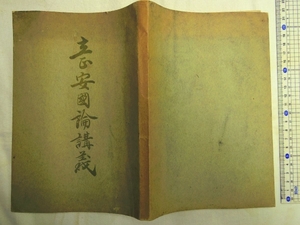 立正安國論講義